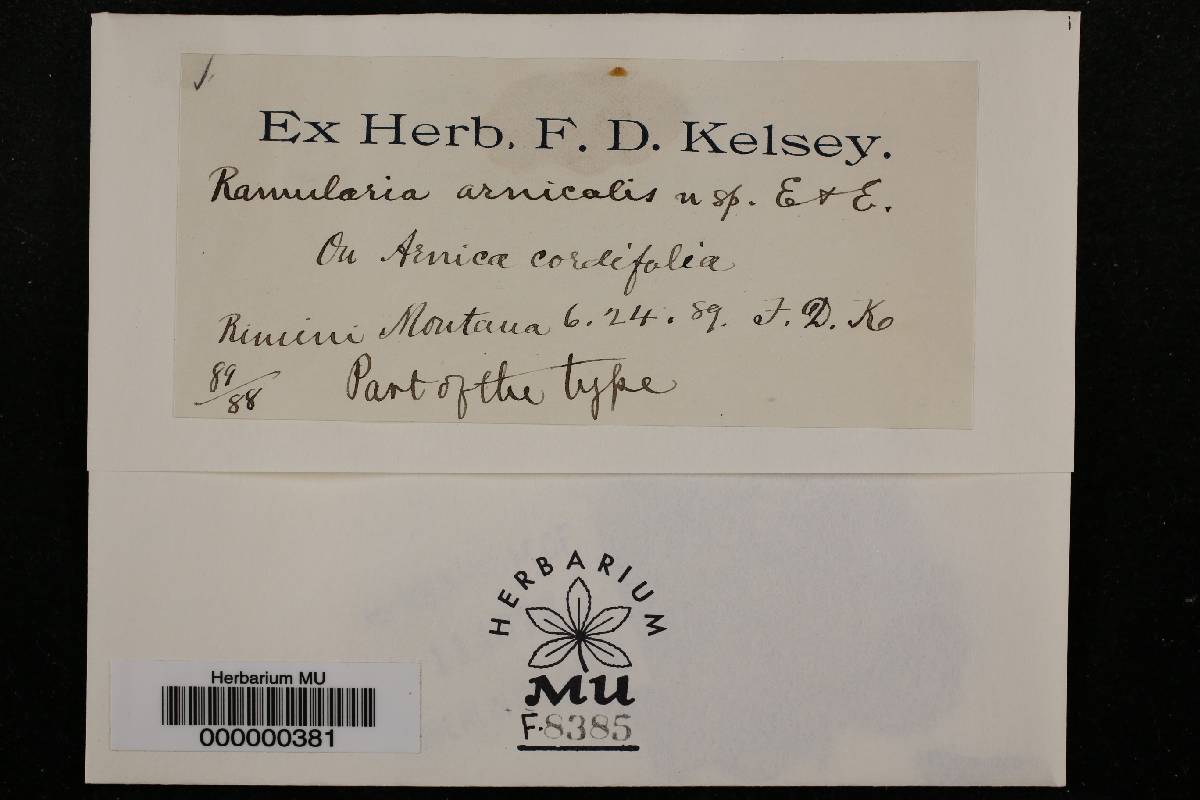 Ex Herb. F. D. Kelsey.
Ramularia arnicalis n sp. E & E.
On Arnica cordifolia
Rimini Montana 6.24.89. F. D. K
89/88 Part of the type
HERBARIUM
MU
F.8385
Herbarium MU
000000381